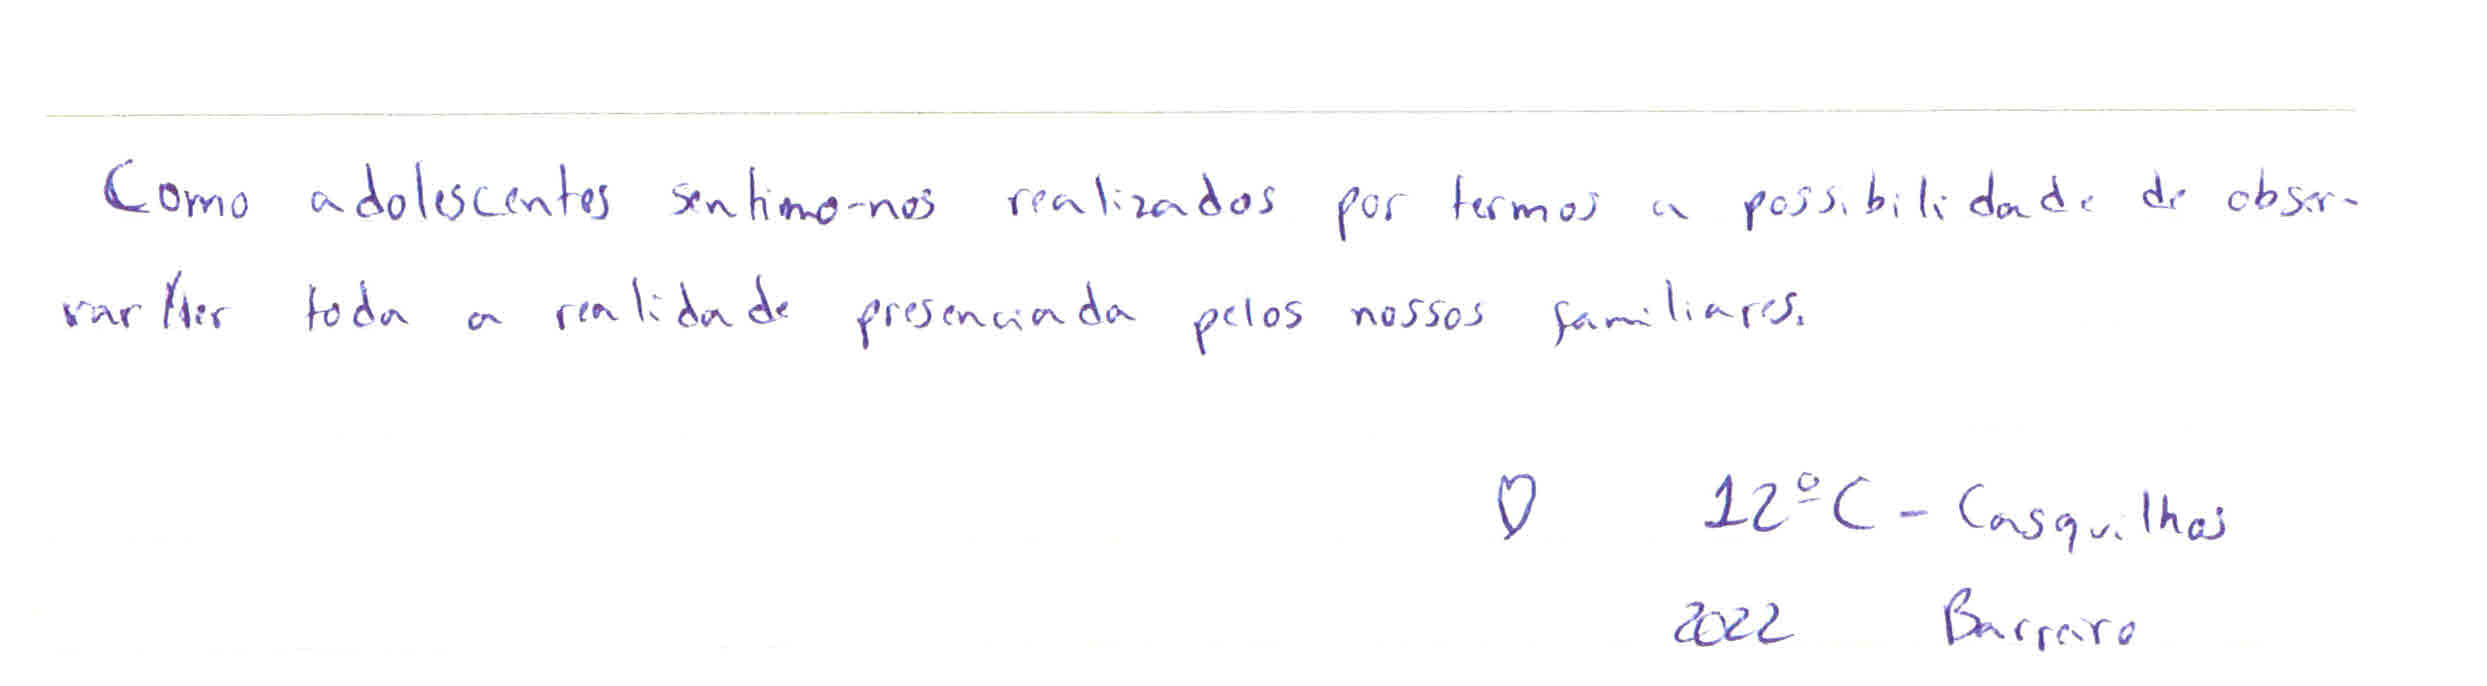 Como adolescentes sentimo-nos realizados por termos a possibilidade de obser-
var/ler toda a realidade presenciada pelos nossos familiares.
♡ 12ºC - Casquilhos
2022 Barreiro